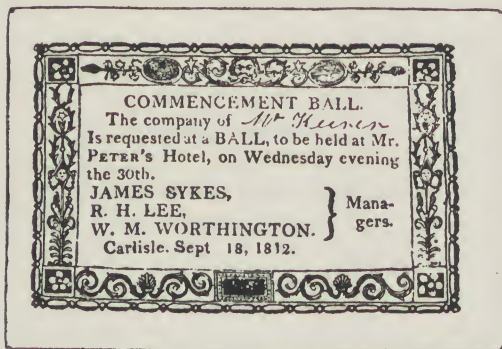 COMMENCEMENT BALL.
The company of Mr Keener
Is requested at a BALL, to be held at Mr.
PETER'S Hotel, on Wednesday evening
the 30th.
JAMES SYKES,
R. H. LEE,
W. M. WORTHINGTON.
Managers.
Carlisle. Sept 18, 1812.